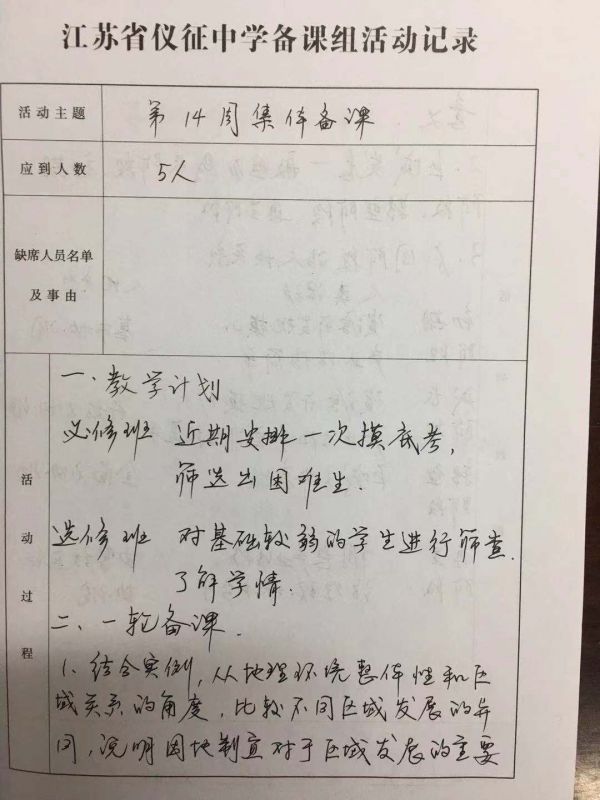 江苏省仪征中学备课组活动记录
活动主题 第14周集体备课
应到人数 5人
缺席人员名单
及事由
活动过程
一、教学计划
必修班 近期安排一次摸底考,
筛选出困难生.
选修班 对基础较弱的学生进行筛查.
了解学情.
二、一轮备课.
1、结合实例,从地理环境整体性和区
域关系的角度,比较不同区域发展的异
同,说明因地制宜对于区域发展的主要